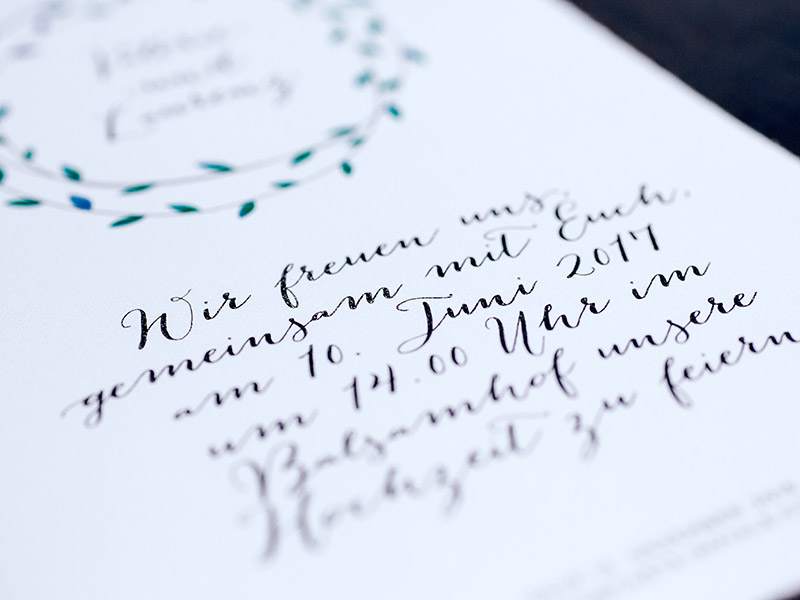 und
Wir freuen uns,
gemeinsam mit Euch,
am 10. Juni 2017
um 14.00 Uhr im
Balsamhof unsere
Hochzeit zu feiern